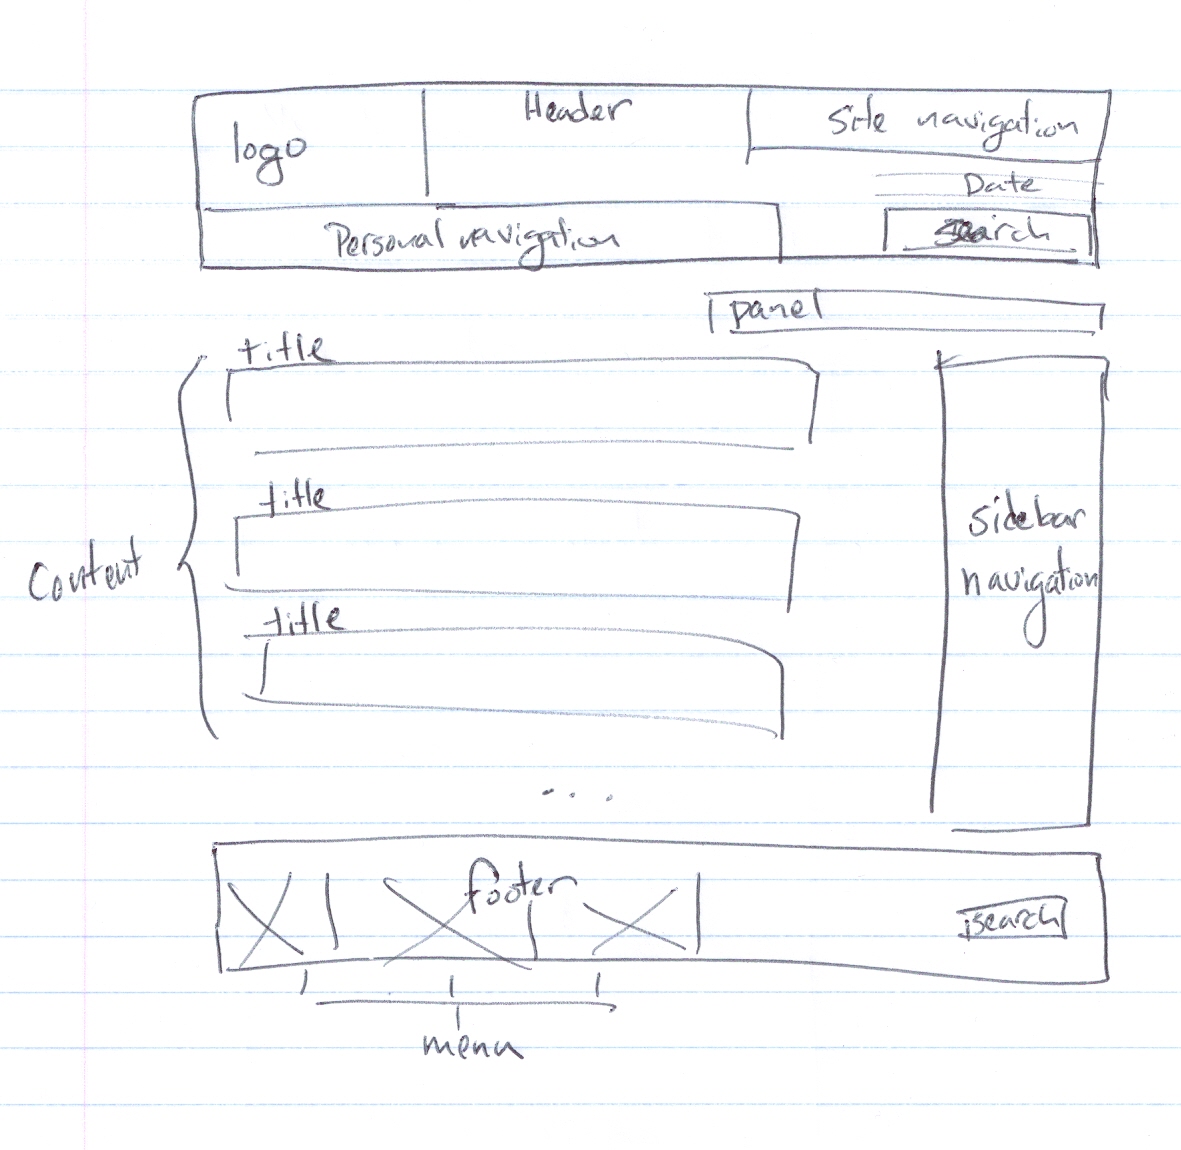 Header
Site navigation
logo
Date
Personal navigation
Search
panel
title
title
Content
sidebar
navigation
title
...
footer
search
menu